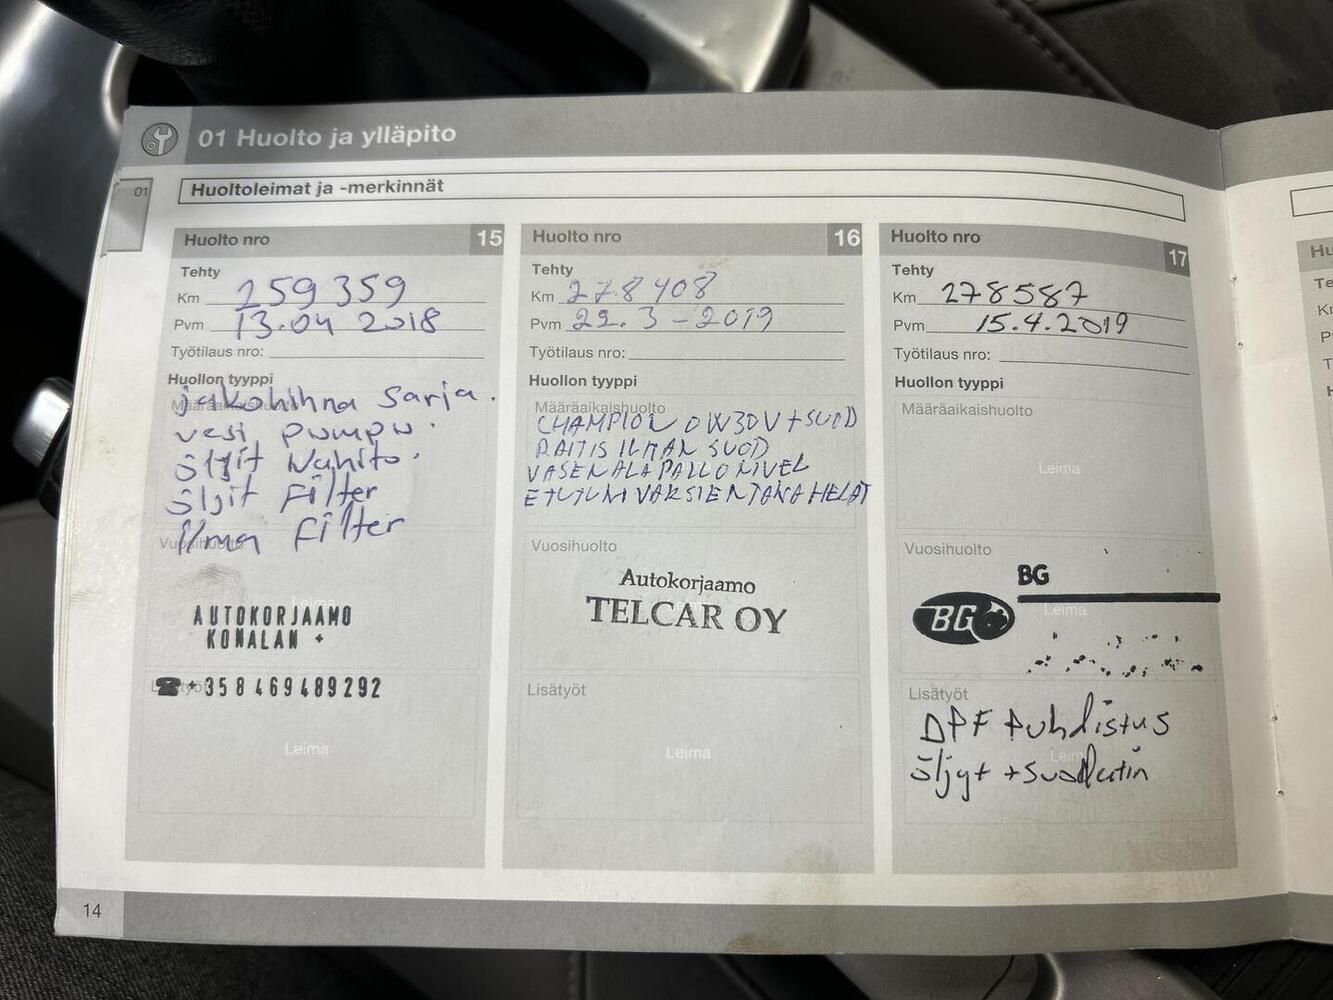 01 Huolto ja ylläpito
01
Huoltoleimat ja -merkinnät
Huolto nro 15
Tehty
Km 259359
Pvm 13.04 2018
Työtilaus nro:
Huollon tyyppi
Määräaikaishuolto
jakohihna sarja.
vesi pumpu.
öljit
öljit Filter
ilma Filter
Vuosihuolto
Leima
AUTOKORJAAMO
KONALAN +
Lisätyöt
☎ +358469489292
Leima
Huolto nro 16
Tehty
Km 278408
Pvm 22.3-2019
Työtilaus nro:
Huollon tyyppi
Määräaikaishuolto
CHAMPION 0W30V+SUOD
RAITIS ILMAN SUOD
VASEN ALAPALLONIVEL
Vuosihuolto
Autokorjaamo
TELCAR OY
Lisätyöt
Leima
Huolto nro 17
Tehty
Km 278587
Pvm 15.4.2019
Työtilaus nro:
Huollon tyyppi
Määräaikaishuolto
Leima
Vuosihuolto
BG
BG
Leima
Lisätyöt
DPF Puhdistus
Leima
öljyt +suodatin
14
Hu
Te